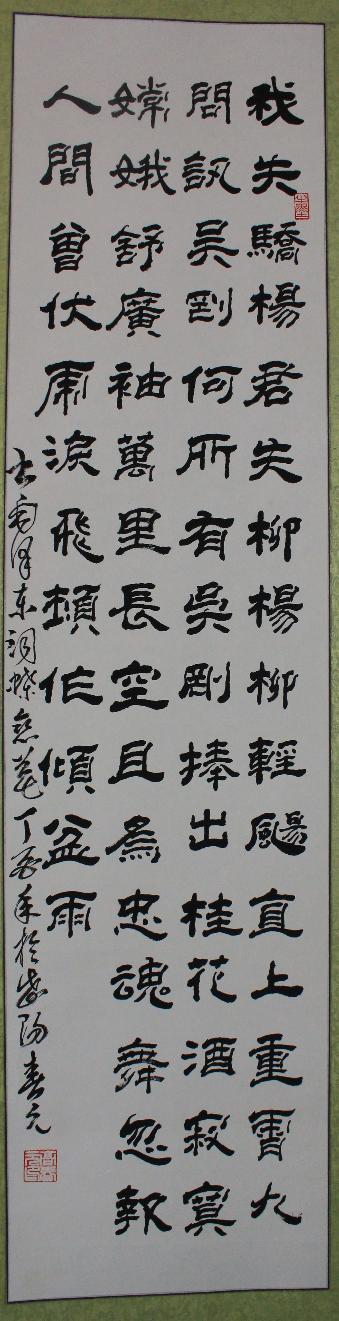 我失驕楊君失柳楊柳輕颺直上重霄九
問訊吴剛何所有吴剛捧出桂花酒寂寞
嫦娥舒廣袖萬里長空且為忠魂舞忽報
人間曾伏虎淚飛頓作傾盆雨
書毛澤東詞蝶戀花丁年於陽春元